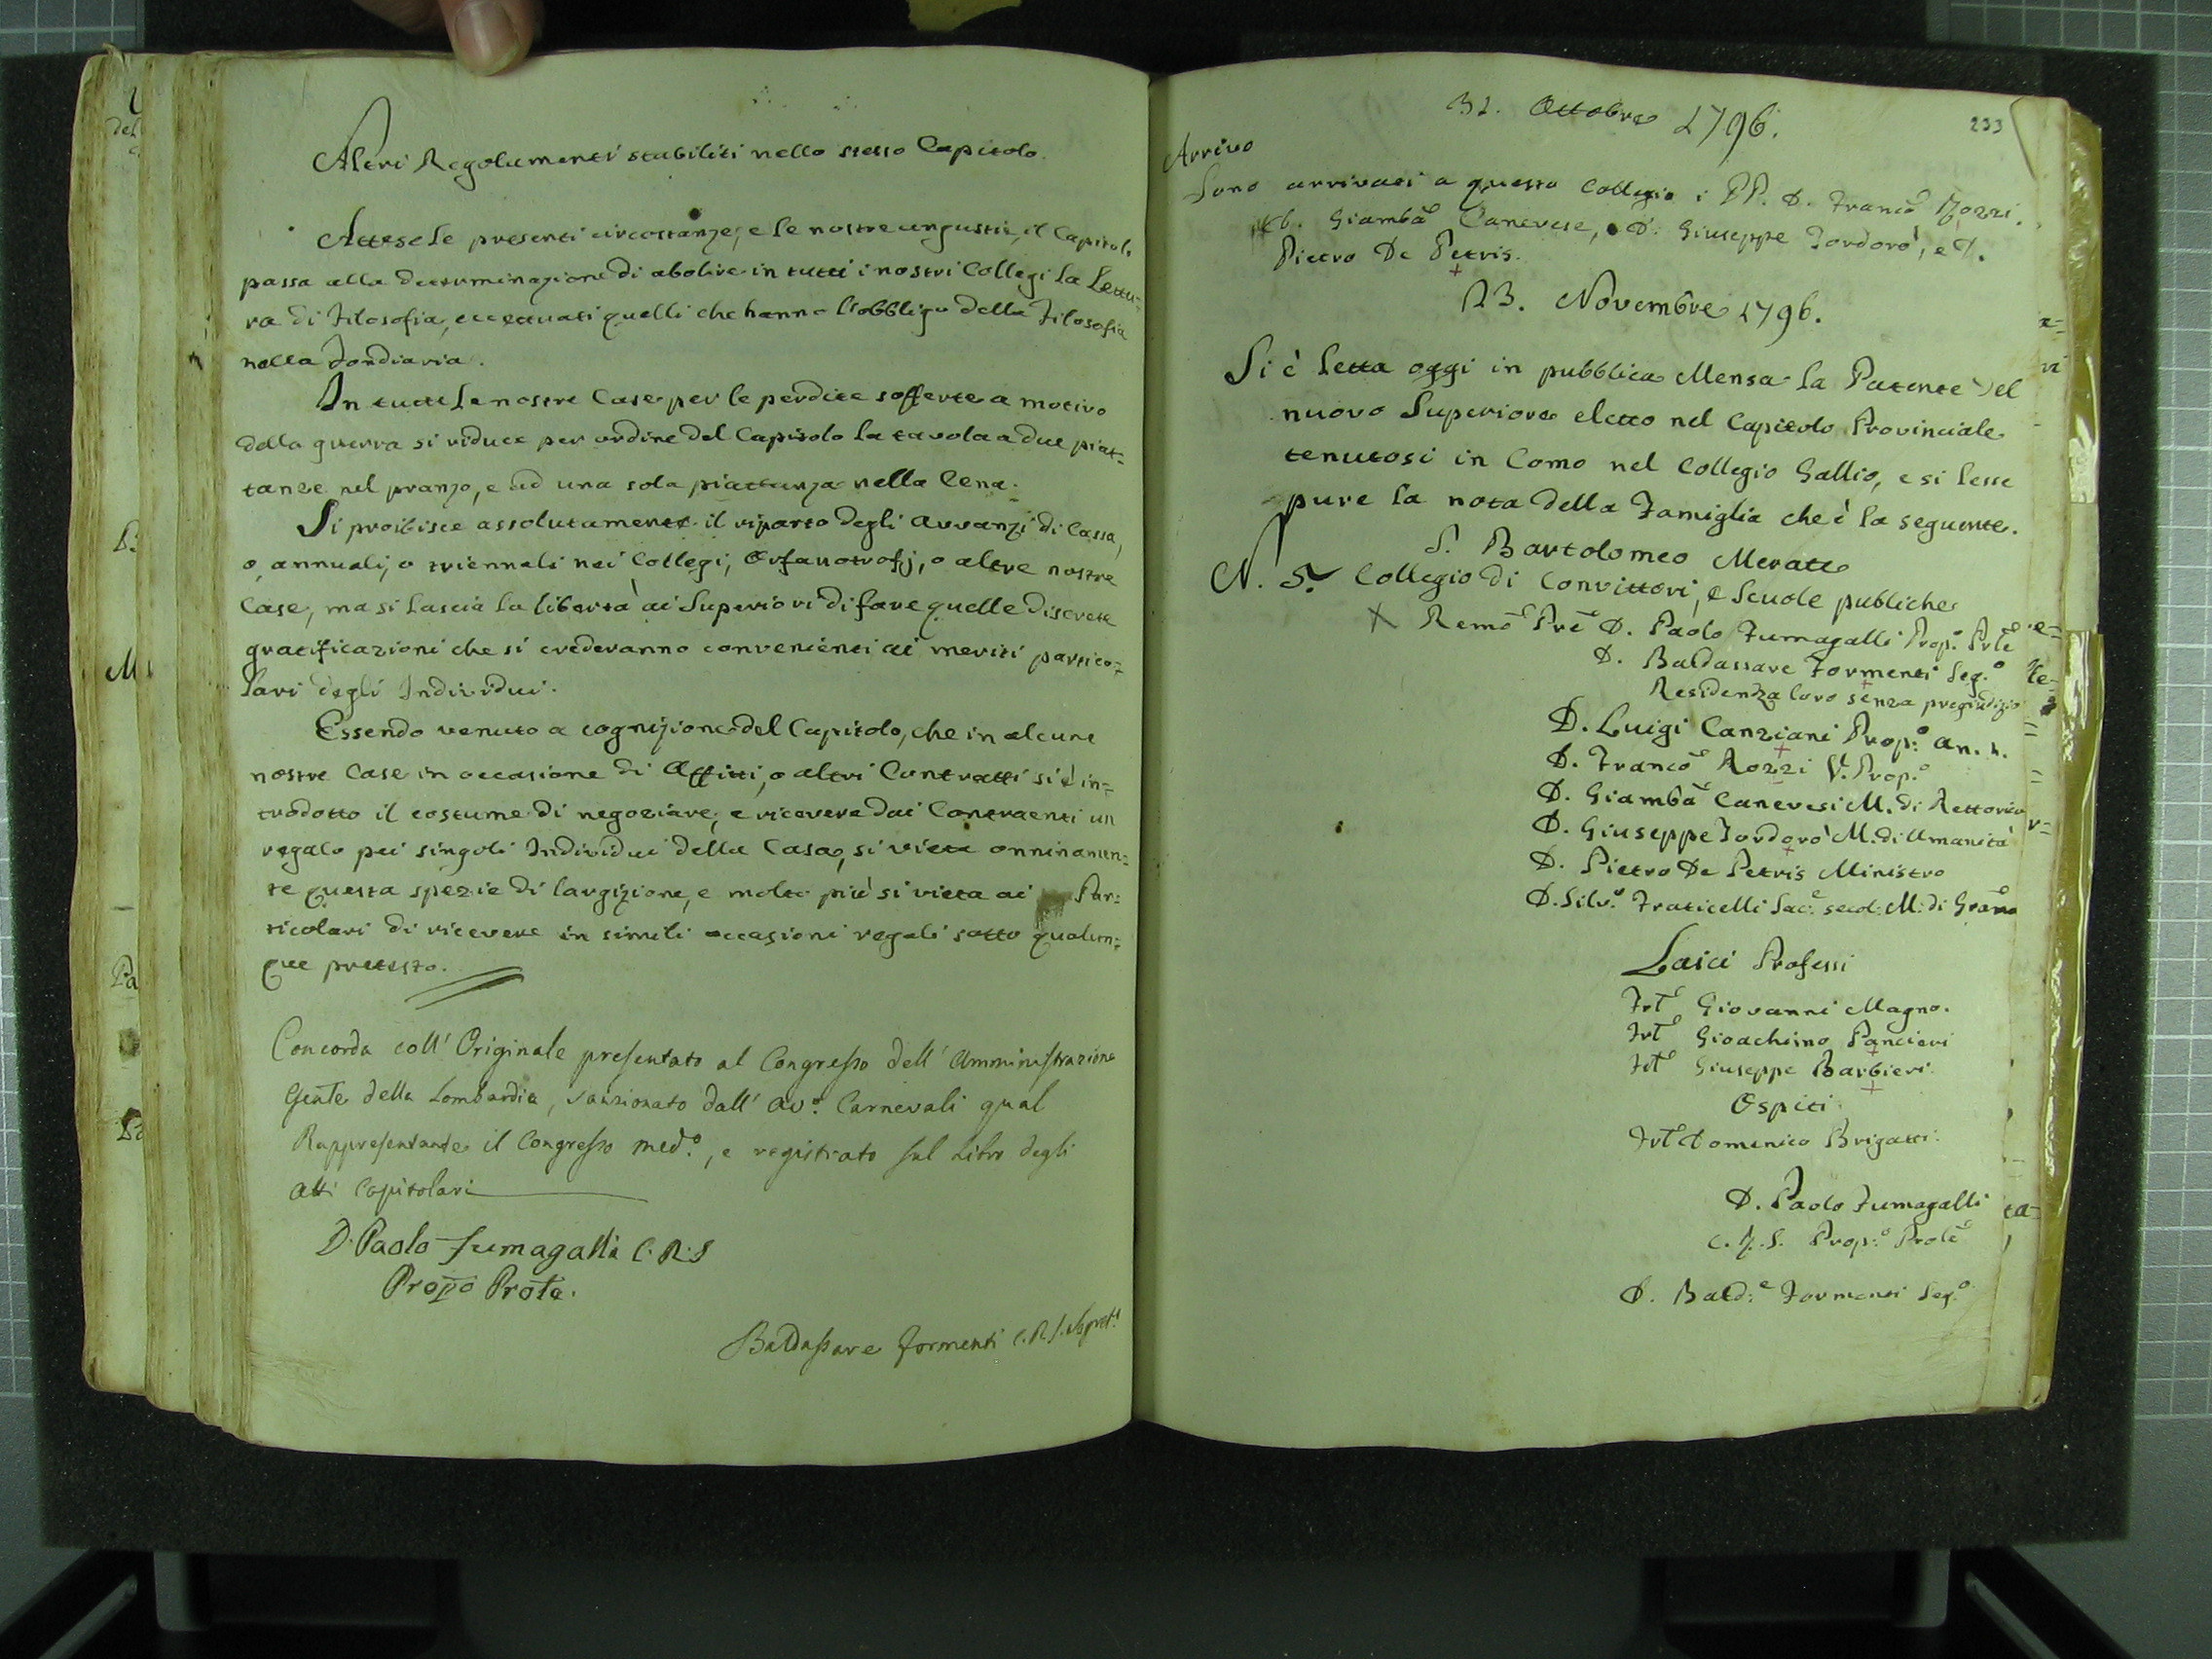 Altri Regolamenti stabiliti nello stesso Capitolo.
Attese le presenti circostanze, e le nostre angustie, il Capitolo
passa alla determinazione di abolire in tutti i nostri Collegi la Lettu=
ra di Filosofia, eccettuati quelli che hanno l'obbligo della Filosofia
nella Fondiaria.
In tutte le nostre Case per le perdite sofferte a motivo
della guerra si riduce per ordine del Capitolo la tavola a due piat=
tanze nel pranzo, e ad una sola piattanza nella Cena.
Si proibisce assolutamente il riparto degli avvanzi di Cassa,
o annuali, o triennali nei Collegi, Orfanotrofj, o altre nostre
Case, ma si lascia la libertà ai Superiori di fare quelle discrete
gratificazioni che si crederanno convenienti ai meriti partico=
lari degli Individui.
Essendo venuto a cognizione del Capitolo, che in alcune
nostre Case in occasione di Affitti, o altri Contratti si è in=
trodotto il costume di negoziare, e ricevere dai Contraenti un
regalo pei singoli Individui della Casa, si vieta onninamen=
te questa spezie di largizione, e molto più si vieta ai Par=
ticolari di ricevere in simili occasioni regali sotto qualun=
que pretesto.
Concorda coll' Originale presentato al Congresso dell' Amministrazione
Gente della Lombardia, sanzionato dall' Avo. Carnevali qual
Rappresentante il Congresso medo., e registrato sul Libro degli
Atti Capitolari
D. Paolo Fumagalli C.R.S
Propo Prole.
Baldassare Formenti C.R.S.
31. Ottobre 1796.
233
Arrivo
Sono arrivati a questo Collegio i PP. D. Franco Rozzi.
Giamba Canevese, D. Giuseppe Fordorò, e
Pietro De Petris.
23. Novembre 1796.
Si è letta oggi in pubblica Mensa la Patente del
nuovo Superiore eletto nel Capitolo Provinciale
tenutosi in Como nel Collegio Gallio, e si lesse
pure la nota della Famiglia che è la seguente.
S. Bartolomeo Merate
N. 5. Collegio di Convittori, e Scuole publiche
Remo Pre D. Paolo Fumagalli Propo. Prle
D. Baldassare Formenti Sego.
Residenza loro senza pregiudizio
D. Luigi Canziani Propo. an. 1.
D. Franco Rozzi V. Propo.
D. Giamba Canevesi M. di Rettorica
D. Giuseppe Fordorò M. di Umanità
D. Pietro De Petris Ministro
D. Silvo. Fraticelli Sace. secol: M: di Grama
Laici Professi
Frte Giovanni Magno.
Frte Gioachimo Pancieri
Frte Giuseppe Barbieri.
Ospiti.
Frte Domenico Brigatti.
D. Paolo Fumagalli
C.R.S. Propo. Prole
D. Balde. Formenti Sego.